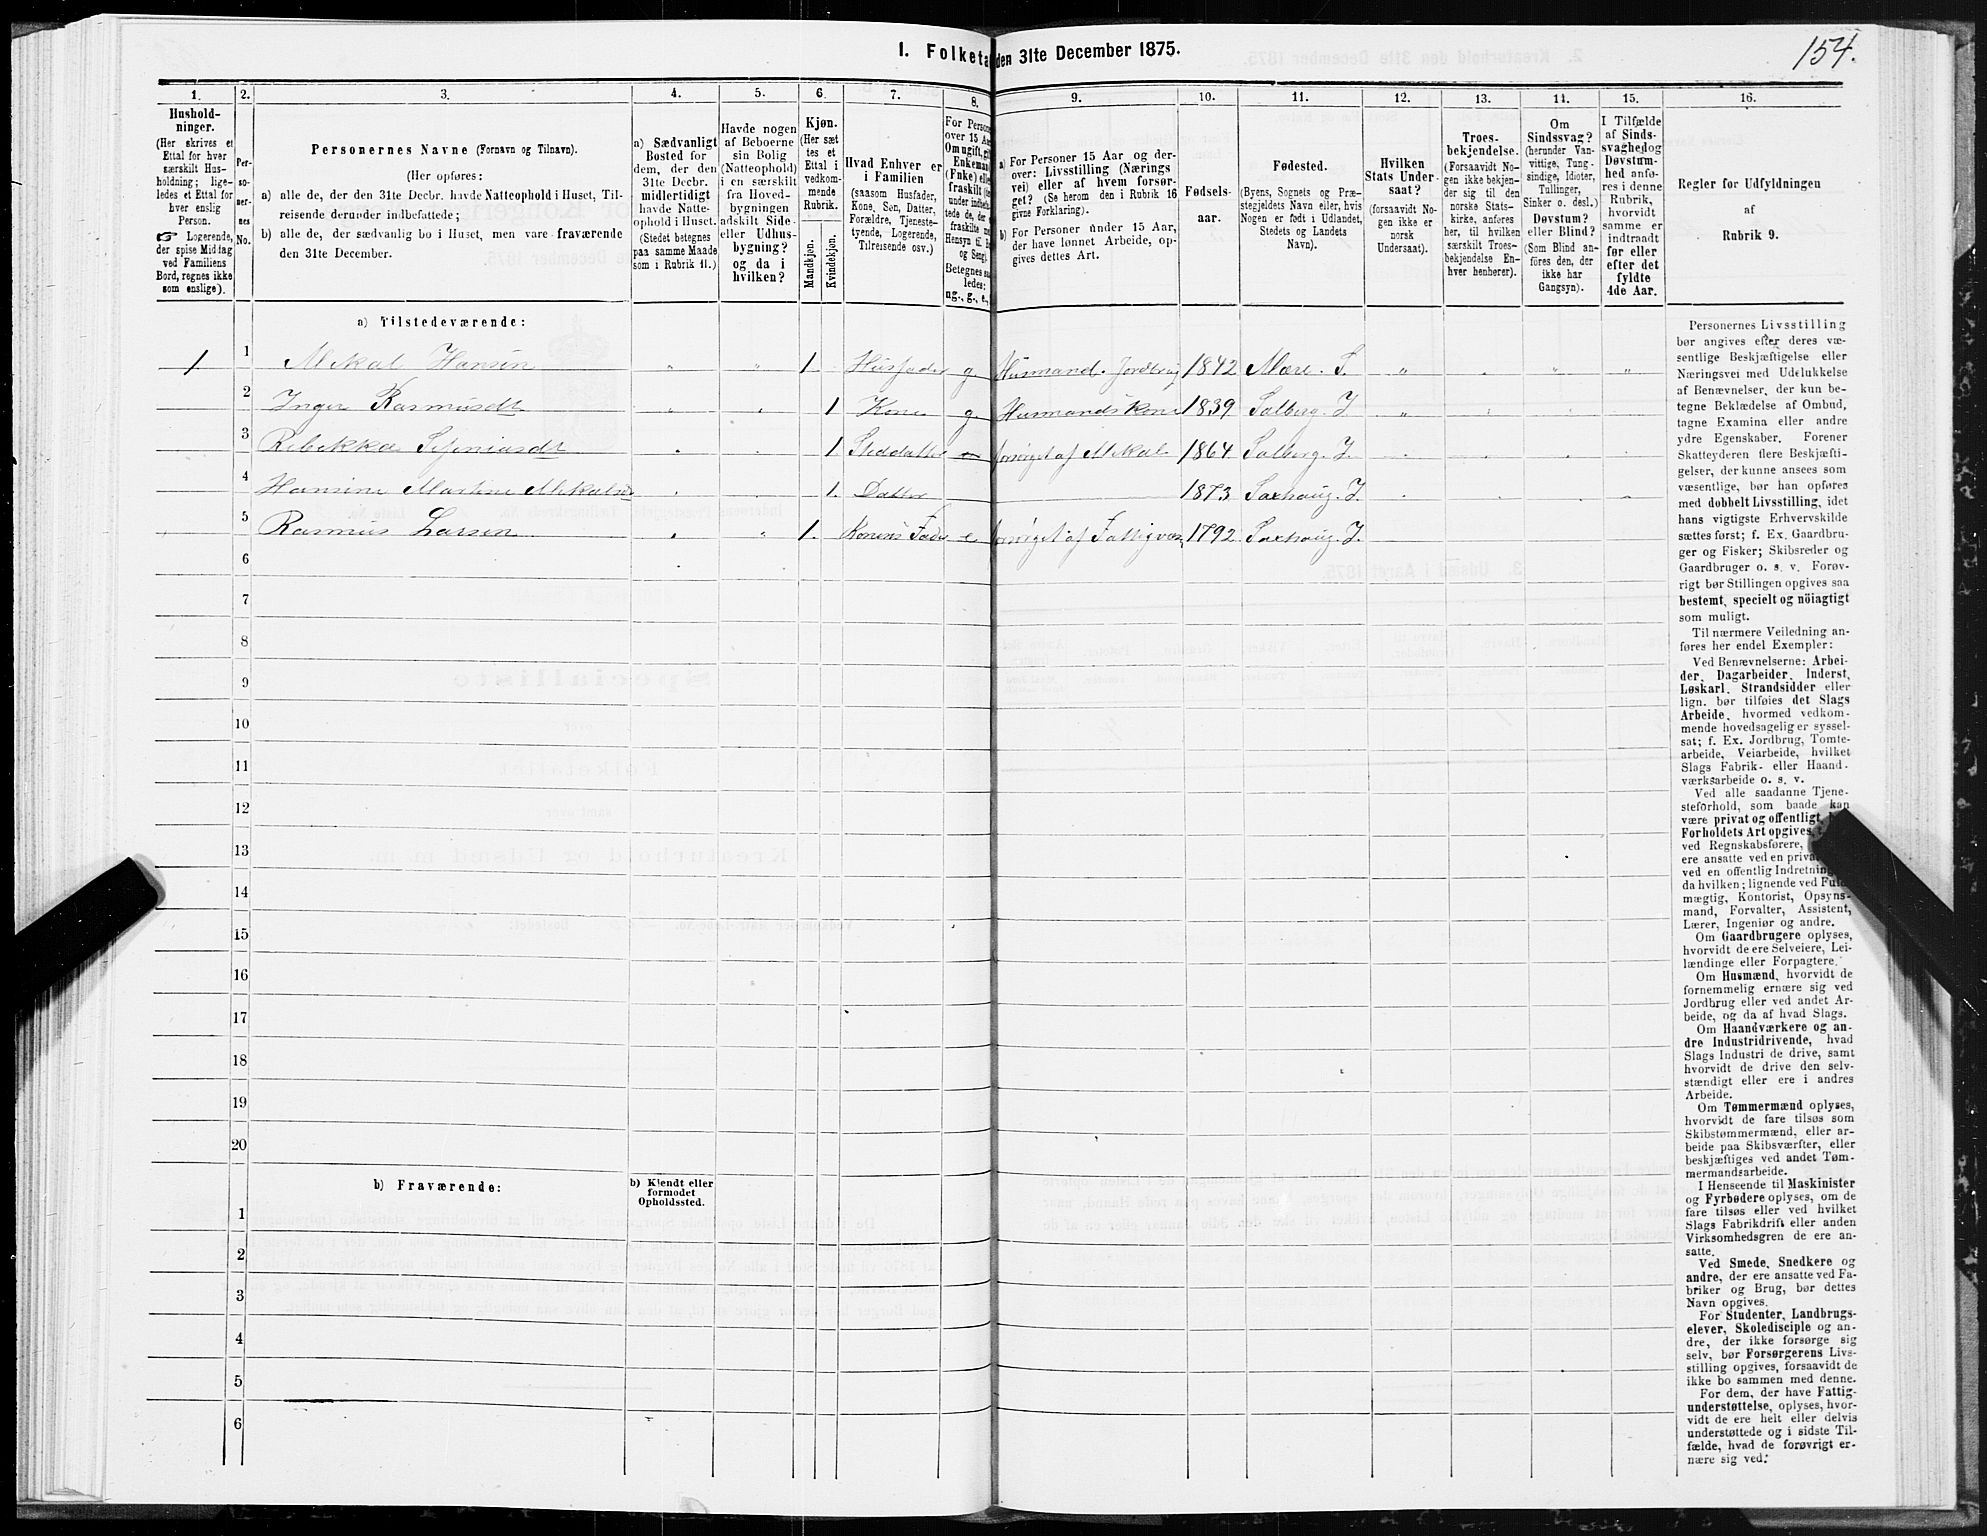 1. Folketa den 31te December 1875.
154.
1. 2. 3. 4. 5. 6. 7. 8. 9. 10. 11. 12. 13. 14. 15. 16.
Hushold-
ninger.
(Her skrives et
Ettal for hver
særskilt Hus-
holdning; lige-
ledes et Ettal for
hver enslig
Person.
☞ Logerende,
der spise Middag
ved Familiens
Bord, regnes ikke
som enslige).
Per-
so-
ner-
nes
No.
Personernes Navne (Fornavn og Tilnavn).
(Her opføres:
a) alle de, der den 31te Decbr. havde Natteophold i Huset, Til-
reisende derunder indbefattede;
b) alle de, der sædvanlig bo i Huset, men vare fraværende
den 31te December.
a) Sædvanligt
Bosted for
dem, der den
31te Decbr.
midlertidigt
havde Natte-
ophold i Huset.
(Stedet betegnes
paa samme Maade
som i Rubrik 11.)
Havde nogen
af Beboerne
sin Bolig
(Natteophold)
i en særskilt
fra Hoved-
bygningen
adskilt Side-
eller Udhus-
bygning?
og da i
hvilken?
Kjøn.
(Her sæt
tes et
Ettal i
vedkom-
mende
Rubrik.
Mandkjøn.
Kvindekjøn.
Hvad Enhver er
i Familien
(saasom Husfader,
Kone, Søn, Datter,
Forældre, Tjeneste-
tyende, Logerende,
Tilreisende osv.)
For Person
over 15 Aar
Om ugift, gi
Enkeman
(Enke) el
fraskilt
under indbefat
tede de, der
fraskilte m
Hensyn til B
og Seng).
Betegnes saa
ledes:
ug., g., e.,
a) For Personer 15 Aar og der-
over: Livsstilling (Nærings
vei) eller af hvem forsør-
get? (Se herom den i Rubrik 16
givne Forklaring).
b) For Personer under 15 Aar,
der have lønnet Arbeide, op-
gives dettes Art.
Fødsels-
aar.
Fødested.
(Byens, Sognets og Præ-
stegjeldets Navn eller, hvis
Nogen er født i Udlandet,
Stedets og Landets
Navn).
Hvilken
Stats Under-
saat?
(forsaavidt No-
gen ikke er
norsk
Undersaat).
Troes-
bekjendelse.
(Forsaavidt No-
gen ikke bekjen-
der sig til den
norske Stats-
kirke, anføres
her, til hvilken
særskilt Troes-
bekjendelse En-
hver henhører).
Om
Sindssvag?
(herunder Van-
vittige, Tung-
sindige, Idioter,
Tullinger,
Sinker o. desl.)
Døvstum?
eller Blind?
(Som Blind an-
føres den, der
ikke har
Gangsyn).
I Tilfælde
af Sinds-
svaghed og
Døvstum-
hed anfø-
res i denne
Rubrik,
hvorvidt
samme er
indtraadt
før eller
efter det
fyldte
4de Aar.
Regler for Udfyldningen
af
Rubrik 9.
a) Tilstedeværende:
1 1 Mekal Hansen „ „ 1 Husfader g. Husmand. Jordbrug 1842 Mære. S. „ „ „ „
2 Inger Rasmusdt „ „ 1 Kone g. Husmandskone 1839 Salberg. I. „ „ „
3 Rebekka Sefeniasdt „ „ 1 Steddatter forsørget af Mekal 1864 Salberg. I.
4 Hansine Martine Mekalsd „ „ 1. Datter 1873 Saxhaug. I.
5 Rasmus Larsen „ „ 1. Konens Fader e forsørget af Fattigvæs. 1792 Saxhaug. I.
6
7
8
9
10
11
12
13
14
15
16
17
18
19
20
b) Fraværende:
b) Kjendt eller
formodet
Opholdssted.
1
2
3
4
5
6
Personernes Livsstilling
bør angives efter deres væ-
sentlige Beskjæftigelse eller
Næringsvei med Udelukkelse
af Benævnelser, der kun be-
tegne Beklædelse af Ombud,
tagne Examina eller andre
ydre Egenskaber. Forener
Skatteyderen flere Beskjæfti-
gelser, der kunne ansees som
væsentlige, bør han opføres
med dobbelt Livsstilling, idet
hans vigtigste Erhvervskilde
sættes først; f. Ex. Gaardbru-
ger og Fisker; Skibsreder og
Gaardbruger o. s. v. Forøv-
rigt bør Stillingen opgives saa
bestemt, specielt og nöiagtigt
som muligt.
Til nærmere Veiledning an-
føres her endel Exempler:
Ved Benævnelserne: Arbei-
der, Dagarbeider, Inderst,
Løskarl, Strandsidder eller
lign. bør tilføies det Slags
Arbeide, hvormed vedkom-
mende hovedsagelig er syssel-
sat; f. Ex. Jordbrug, Tomte-
arbeide, Veiarbeide, hvilket
Slags Fabrik- eller Haand-
værksarbeide o. s. v.
Ved alle saadanne Tjene-
steforhold, som baade kan
være privat og offentligt,
Forholdets Art opgives,
ved Regnskabsførere,
ere ansatte ved en privat
ved en offentlig Indretning
da hvilken; lignende ved Fuld
mægtig, Kontorist, Opsyns-
mand, Forvalter, Assistent,
Lærer, Ingeniør og andre.
Om Gaardbrugere oplyses,
hvorvidt de ere Selveiere, Lei-
lændinge eller Forpagtere.
Om Husmænd, hvorvidt de
fornemmelig ernære sig ved
Jordbrug eller ved andet Ar-
beide, og da af hvad Slags.
Om Haandværkere og an-
dre Industridrivende, hvad
Slags Industri de drive, samt
hvorvidt de drive den selv-
stændigt eller ere i andres
Arbeide.
Om Tømmermænd oplyses,
hvorvidt de fare tilsøs som
Skibstømmermænd, eller ar-
beide paa Skibsværfter, eller
beskjæftiges ved andet Tøm-
mermandsarbeide.
I Henseende til Maskinister
og Fyrbødere oplyses, om de
fare tilsøs eller ved hvilket
Slags Fabrikdrift eller anden
Virksomhedsgren de ere an-
satte.
Ved Smede, Snedkere og
andre, der ere ansatte ved Fa-
briker og Brug, bør dettes
Navn opgives.
For Studenter, Landbrugs-
elever, Skoledisciple og an-
dre, der ikke forsørge sig
selv, bør Forsørgerens Livs-
stilling opgives, forsaavidt de
ikke bo sammen med denne.
For dem, der have Fattig-
understøttelse, oplyses, hvor-
vidt de ere helt eller delvis
understøttede og i sidste Til-
fælde, hvad de forøvrigt er-
nære sig ved.